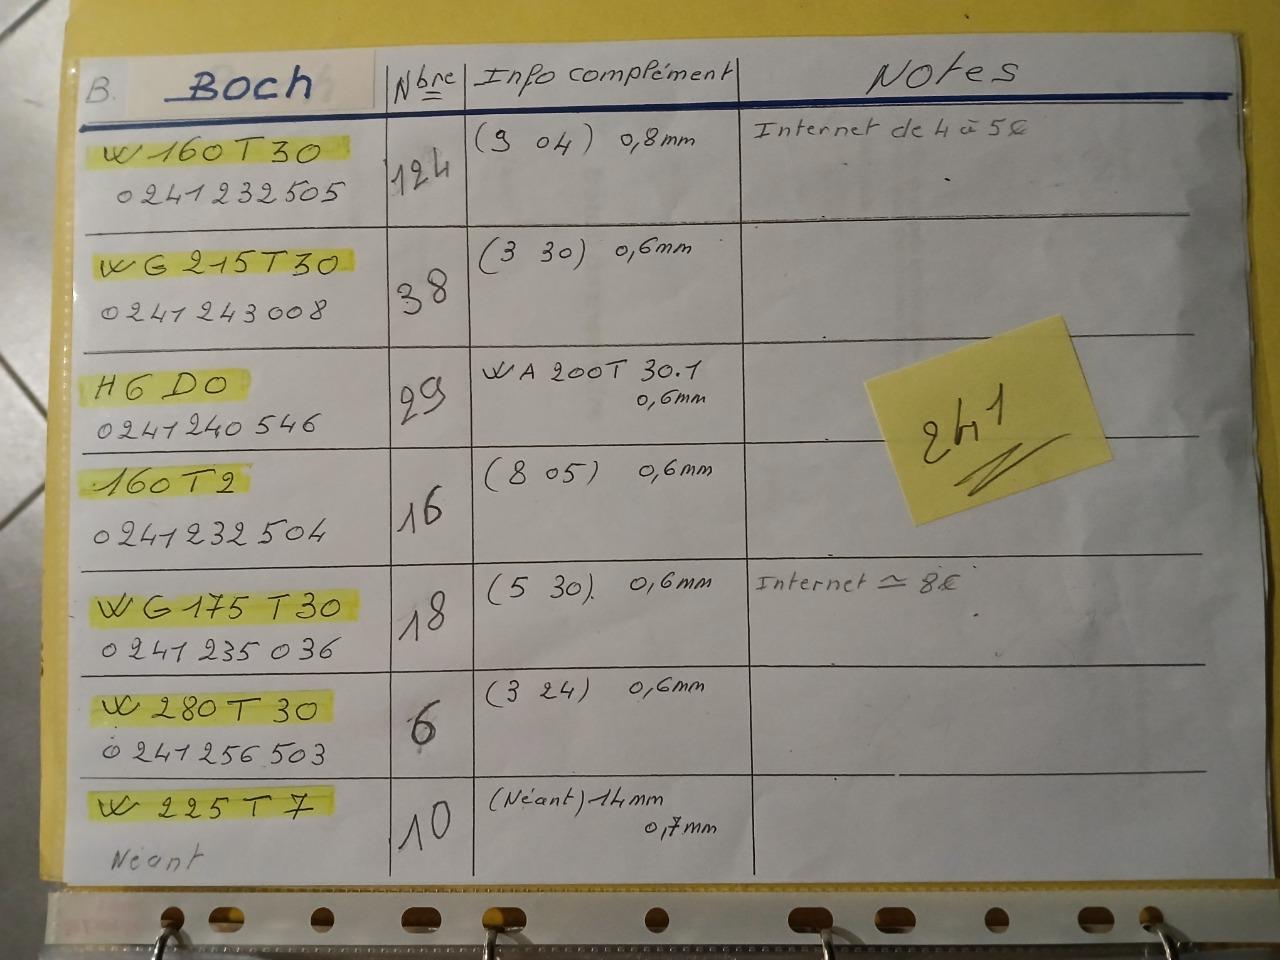 B. Boch Nbre Info complément Notes
W 160 T 30 124 (9 04) 0,8mm Internet de 4 à 5€
0241232505
WG 215 T 30 38 (3 30) 0,6mm
0241243008
H6 DO 29 WA 200T 30.1
0,6mm
0241240546
160 T2 16 (8 05) 0,6mm
0241232504
241
WG 175 T 30 18 (5 30). 0,6mm Internet ≃ 8€
0241235036
W 280 T 30 6 (3 24) 0,6mm
0241256503
W 225 T 7 10 (Néant) 14mm
0,7mm
Néant